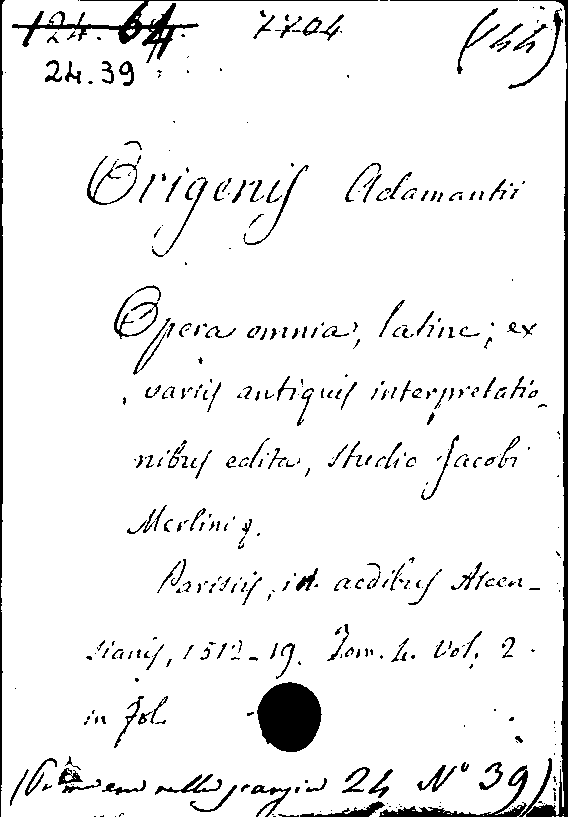 124. 64. 7704 (144)
24.39
Origenis Adamantii
Opera omnia, latine; ex
variis antiquis interpretatio-
nibus edita, studio Jacobi
Merlini q.
Parisiis, in aedibus Ascen-
sianis, 1512-19. Tom. 4. Vol. 2.
in fol.
24 N° 39)